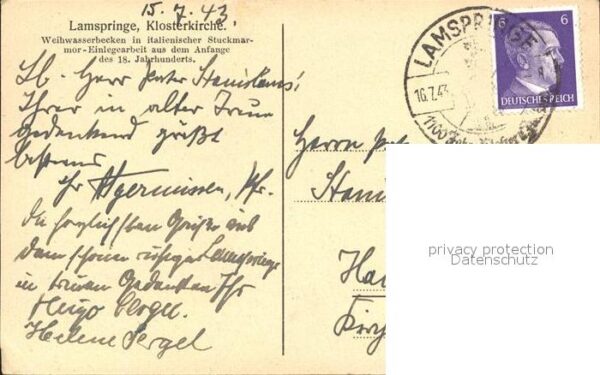 15.7.43.
Lamspringe, Klosterkirche.
Weihwasserbecken in italienischer Stuckmar-
mor-Einlegearbeit aus dem Anfange
des 18. Jahrhunderts.
Lb. Herr Pater Stanislaus!
Ihrer in alter Treue
gedenkend grüßt
bestens
Ihr Algermissen, Pfr.
Die herzlichsten Grüße aus
dem schönen ruhigen Lamspringe
in treuem Gedenken Ihr
Hugo Sergel.
Helene Sergel
LAMSPRINGE
16.7.43
1100 Jahr
6 6
DEUTSCHES REICH
Herrn
privacy protection
Datenschutz